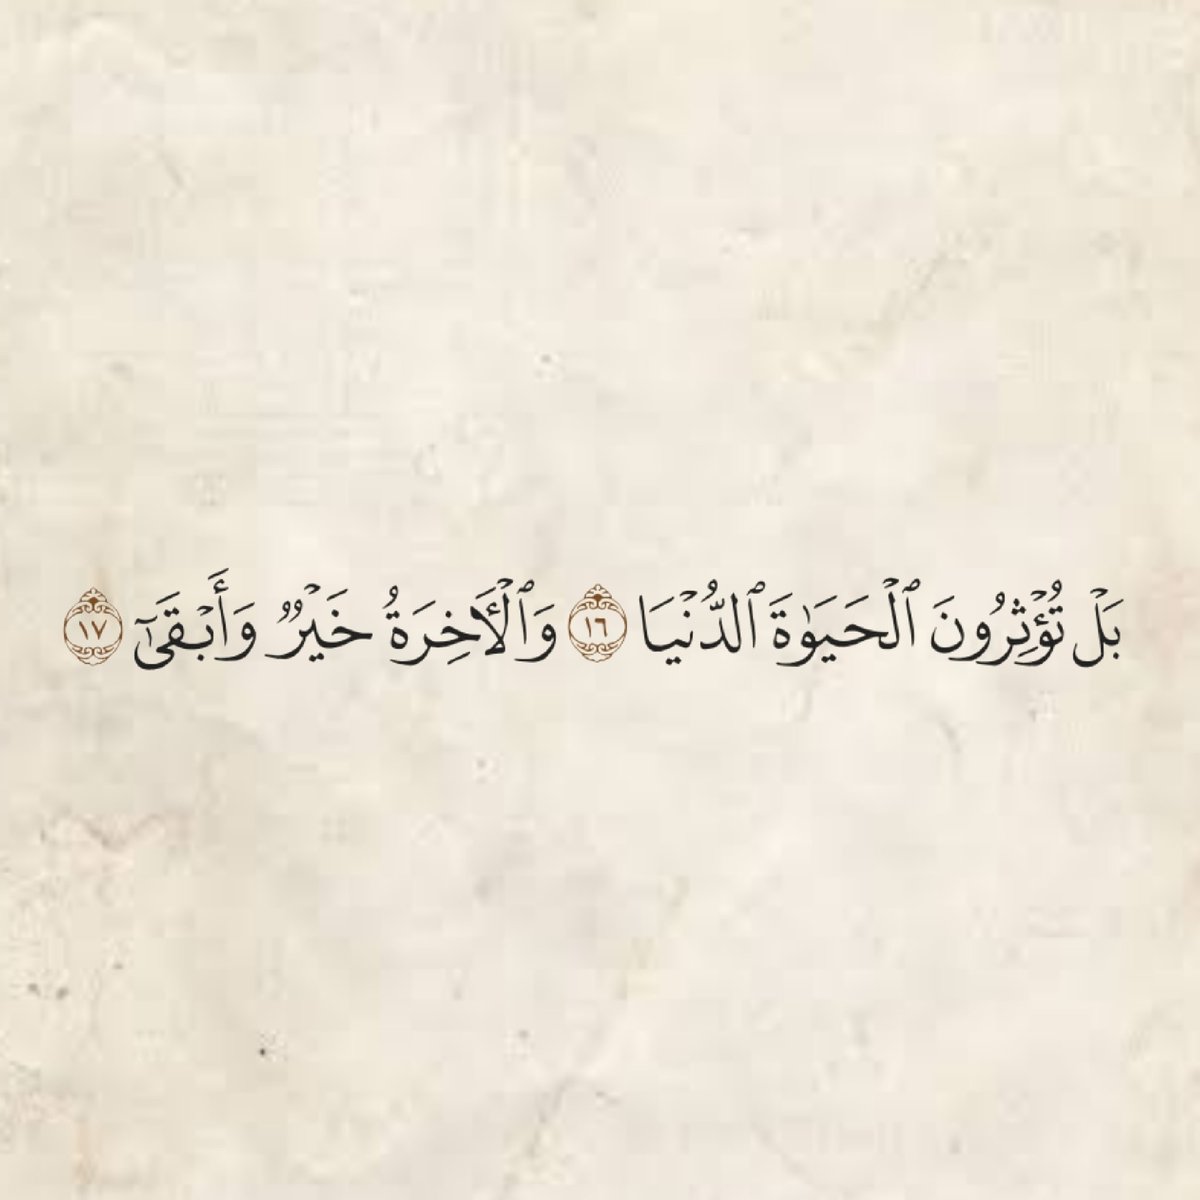 بَلْ تُؤْثِرُونَ ٱلْحَيَوٰةَ ٱلدُّنْيَا ١٦ وَٱلْـَٔاخِرَةُ خَيْرٌ وَأَبْقَىٰٓ ١٧